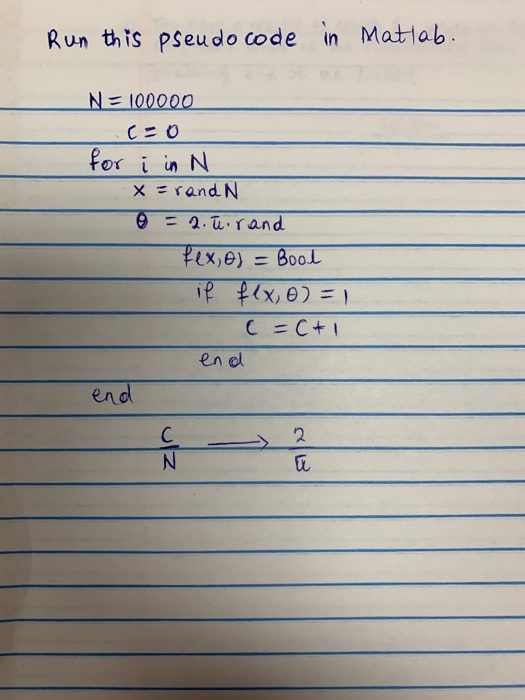 Run this pseudo code in Matlab.
N = 100000
C = 0
for i in N
x = randN
θ = 2.π.rand
f(x,θ) = Bool
if f(x,θ) = 1
C = C+1
end
end
C/N → 2/π